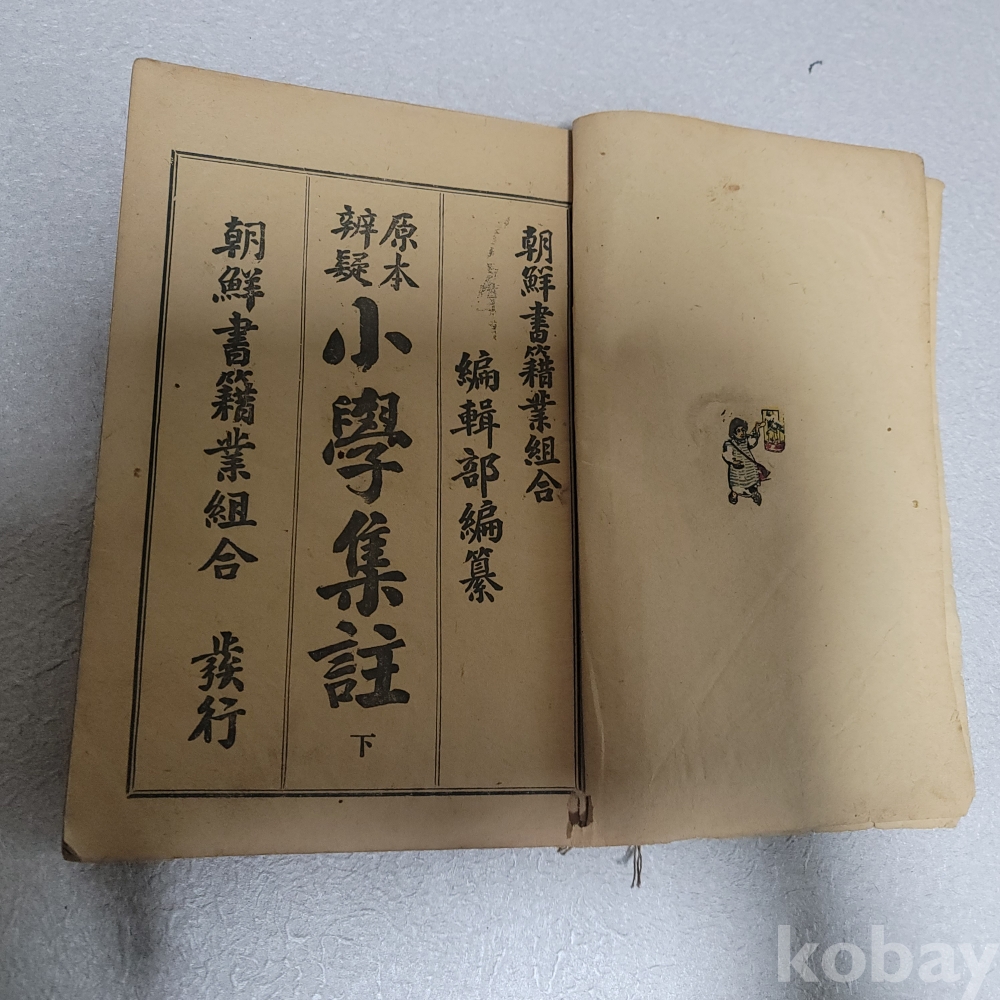 朝鮮書籍業組合
編輯部編纂
原本
辨疑
小學集註
下
朝鮮書籍業組合 發行
kobay